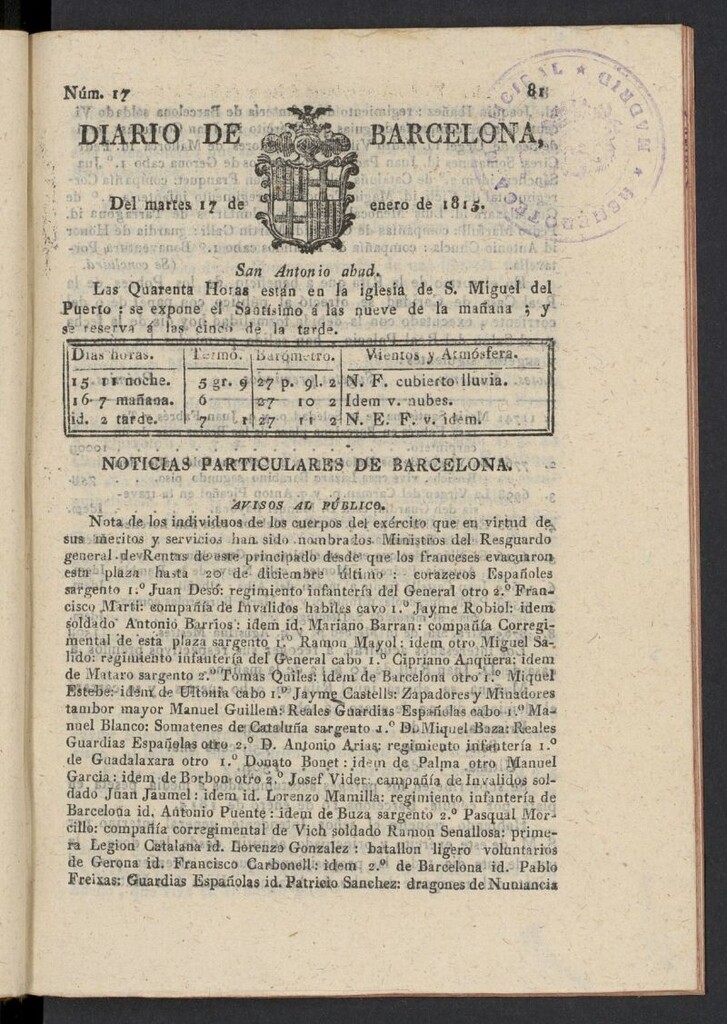 Núm. 17 81
DIARIO DE BARCELONA,
Del martes 17 de enero de 1815.
HEMEROTECA MUNICIPAL ★ MADRID ★
San Antonio abad.
Las Quarenta Horas están en la iglesia de S. Miguel del
Puerto : se expone el Santísimo á las nueve de la mañana ; y
se reserva á las cinco de la tarde.
Dias horas. Termó. Barómetro. Vientos y Atmósfera.
15 11 noche. 5 gr. 9 27 p. 9l. 2 N. F. cubierto lluvia.
16 7 mañana. 6 27 10 2 Idem v. nubes.
id. 2 tarde. 7 1 27 11 2 N. E. F. v. idem.
NOTICIAS PARTICULARES DE BARCELONA.
AVISOS AL PÚBLICO.
Nota de los individuos de los cuerpos del exército que en virtud de
sus meritos y servicios han sido nombrados Ministros del Resguardo
general de Rentas de este principado desde que los franceses evacuaron
esta plaza hasta 20 de diciembre último : corazeros Españoles
sargento 1.º Juan Desó: regimiento infantería del General otro 2.º Fran-
cisco Marti: compañía de Invalidos habiles cavo 1.º Jayme Robiol: idem
soldado Antonio Barrios: idem id. Mariano Barran: compañía Corregi-
mental de esta plaza sargento 1.º Ramon Mayol: idem otro Miguel Sa-
lido: regimiento infantería del General cabo 1.º Cipriano Anqüera: idem
de Mataro sargento 2.º Tomas Quiles: idem de Barcelona otro 1.º Miquel
Estebe: idem de Ultonia cabo 1.º Jayme Castells: Zapadores y Minadores
tambor mayor Manuel Guillem: Reales Guardias Españolas cabo 1.º Ma-
nuel Blanco: Somatenes de Cataluña sargento 1.º D. Miquel Baza: Reales
Guardias Españolas otro 2.º D. Antonio Arias: regimiento infantería 1.º
de Guadalaxara otro 1.º Donato Bonet : idem de Palma otro Manuel
Garcia: idem de Borbon otro 2.º Josef Vider: campañía de Invalidos sol-
dado Juan Jaumel : idem id. Lorenzo Mamilla: regimiento infantería de
Barcelona id. Antonio Puente : idem de Buza sargento 2.º Pasqual Mor-
cillo: compañía corregimental de Vich soldado Ramon Senallosa: prime-
ra Legion Catalana id. Lorenzo Gonzalez : batallon ligero voluntarios
de Gerona id. Francisco Carbonell : idem 2.º de Barcelona id. Pablo
Freixas: Guardias Españolas id. Patricio Sanchez: dragones de Numancia